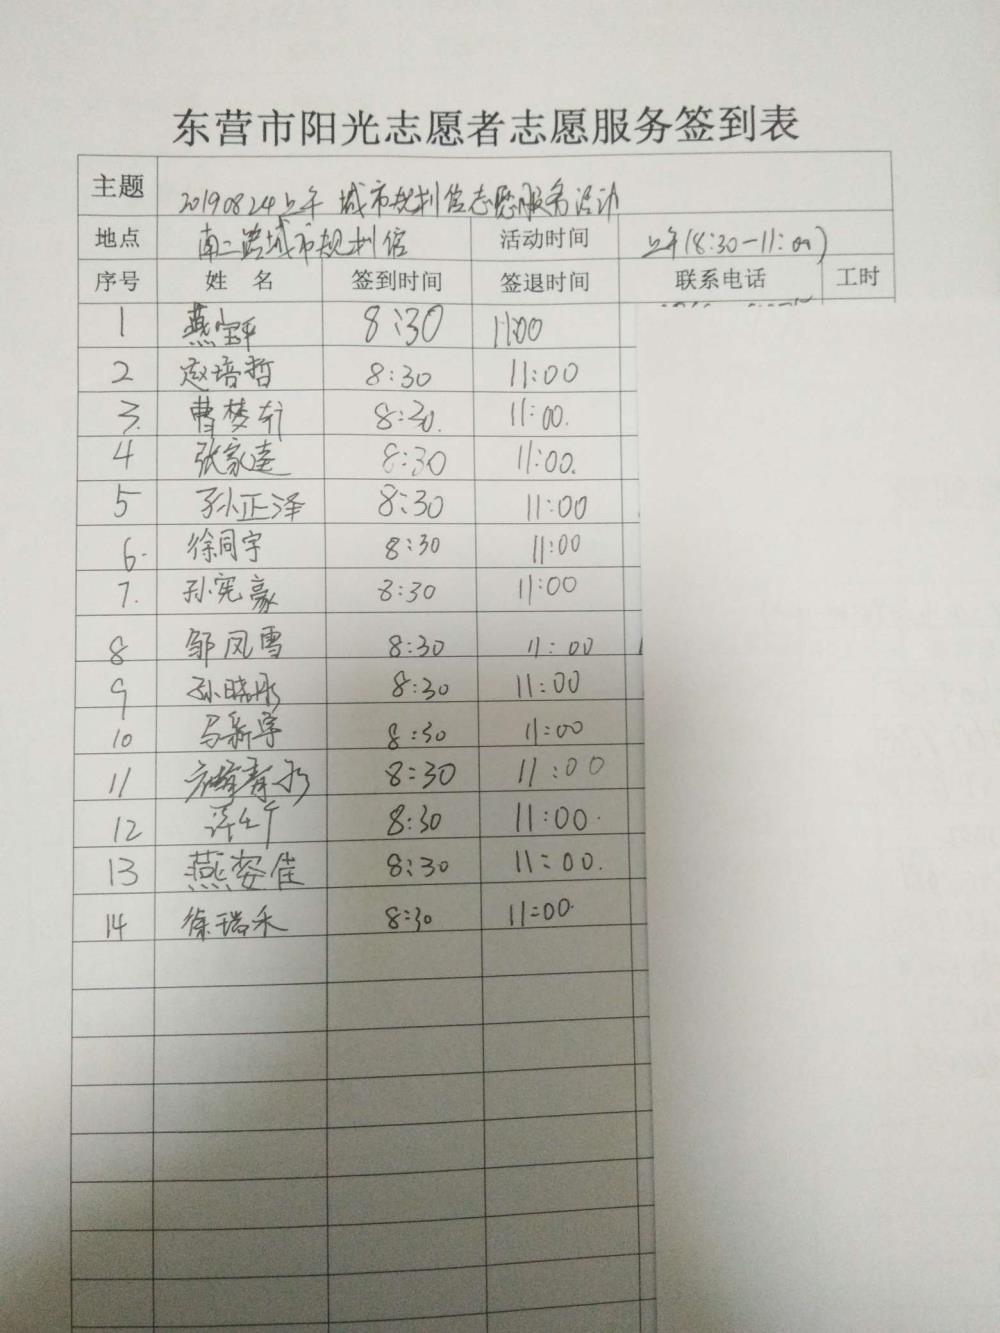 东营市阳光志愿者志愿服务签到表
主题 20190824上午 城市规划馆志愿服务活动
地点 南二路城市规划馆 活动时间 上午(8:30-11:00)
序号 姓名 签到时间 签退时间 联系电话 工时
1 燕宝平 8:30 11:00
2 赵培哲 8:30 11:00
3. 曹梦轩 8:30. 11:00.
4 张家逵 8:30 11:00.
5 孙正泽 8:30 11:00
6. 徐同宇 8:30 11:00
7. 孙宪豪 8:30 11:00
8 邹凤雪 8:30 11:00
9 孙晓彤 8:30 11:00
10 马新宇 8:30 11:00
11 8:30 11:00
12 8:30 11:00.
13 燕姿佳 8:30 11:00.
14 徐瑞禾 8:30 11:00.